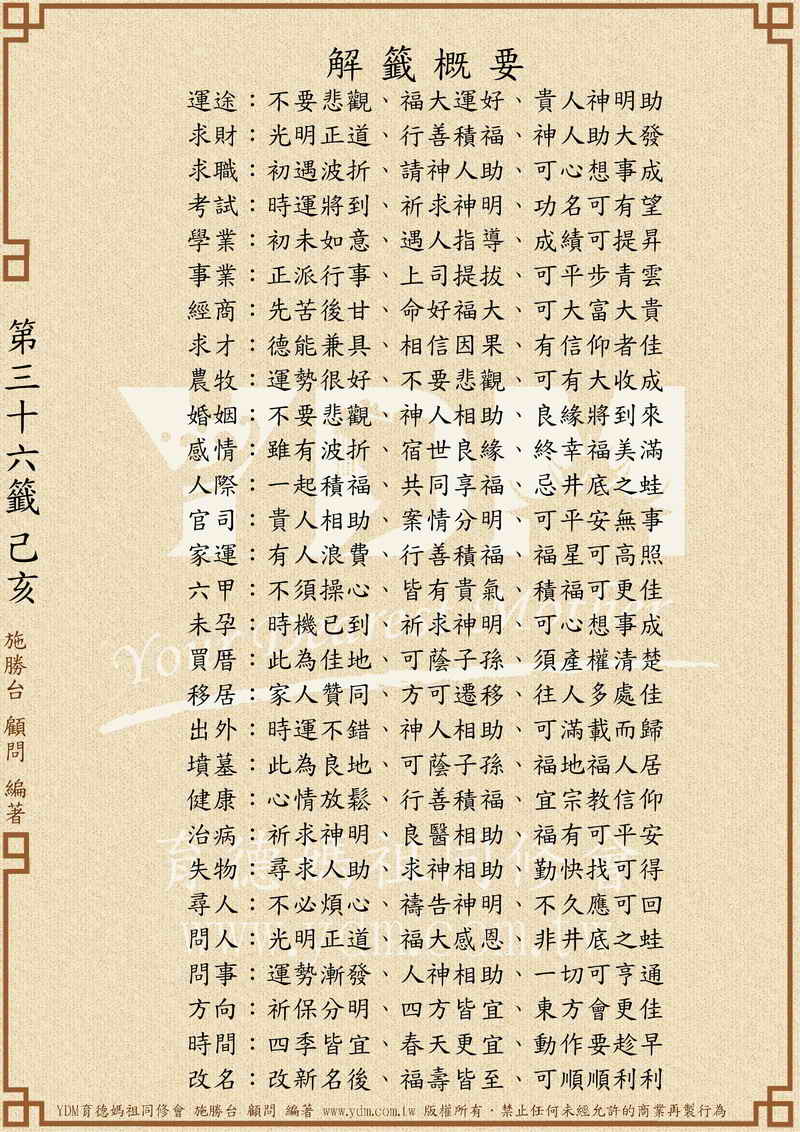 解籤概要
運途：不要悲觀、福大運好、貴人神明助
求財：光明正道、行善積福、神人助大發
求職：初遇波折、請神人助、可心想事成
考試：時運將到、祈求神明、功名可有望
學業：初未如意、遇人指導、成績可提昇
事業：正派行事、上司提拔、可平步青雲
經商：先苦後甘、命好福大、可大富大貴
求才：德能兼具、相信因果、有信仰者佳
農牧：運勢很好、不要悲觀、可有大收成
婚姻：不要悲觀、神人相助、良緣將到來
感情：雖有波折、宿世良緣、終幸福美滿
人際：一起積福、共同享福、忌井底之蛙
官司：貴人相助、案情分明、可平安無事
家運：有人浪費、行善積福、福星可高照
六甲：不須操心、皆有貴氣、積福可更佳
未孕：時機已到、祈求神明、可心想事成
買厝：此為佳地、可蔭子孫、須產權清楚
移居：家人贊同、方可遷移、往人多處佳
出外：時運不錯、神人相助、可滿載而歸
墳墓：此為良地、可蔭子孫、福地福人居
健康：心情放鬆、行善積福、宜宗教信仰
治病：祈求神明、良醫相助、福有可平安
失物：尋求人助、求神相助、勤快找可得
尋人：不必煩心、禱告神明、不久應可回
問人：光明正道、福大感恩、非井底之蛙
問事：運勢漸發、人神相助、一切可亨通
方向：祈保分明、四方皆宜、東方會更佳
時間：四季皆宜、春天更宜、動作要趁早
改名：改新名後、福壽皆至、可順順利利
第三十六籤 己亥
施勝台 顧問 編著
YDM
Your Dearest Mother
育德媽祖同修會
www.ydm.com.tw
YDM育德媽祖同修會 施勝台 顧問 編著 www.ydm.com.tw 版權所有．禁止任何未經允許的商業再製行為